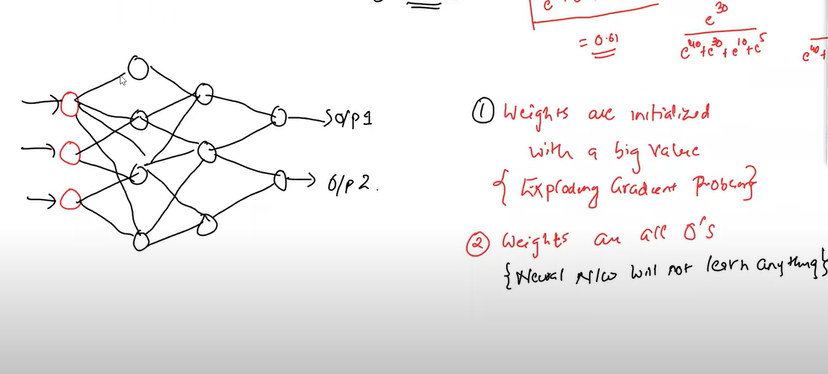 e
= 0.61
e^30
e^40+e^30+e^10+e^5
e^40+
① Weights are initialized
with a big value
{ Exploding Gradient Problem}
② Weights are all 0's
{Neural N/w will not learn anything}
O/p1
O/p 2.